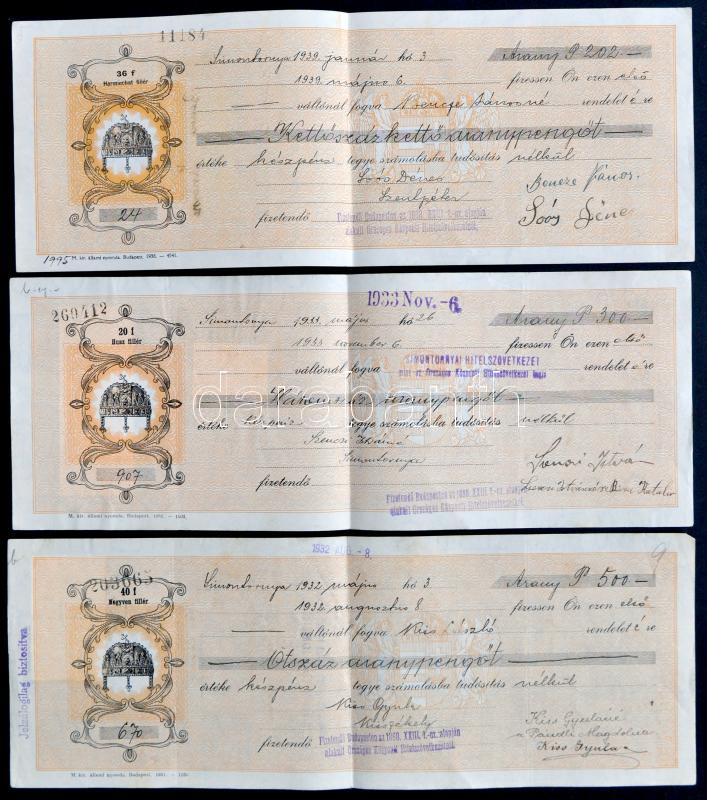 11184
36 f
Harminchat fillér
Simontornya 1939. január hó 3
Arany P 202.—
1939. május 6.
fizessen Ön ezen első
váltónál fogva Bencze Jánosné rendelet é re
Kettőszázkettő aranypengőt
értéke készpénz tegye számolásba tudósítás nélkül
Soós Dénes
Bencze János
24
fizetendő
Fizetendő Budapesten az 1898. XXIII. t.-cz. alapján
alakult Országos Központi Hitelszövetkezetnél.
Soós Dénes
1995
M. kir. állami nyomda. Budapest.
269412
1933 Nov. -6.
20 f
Husz fillér
Simontornya 1933. május hó 26
Arany P 300—
1933 november 6
fizessen Ön ezen első
SIMONTORNYAI HITELSZÖVETKEZET
váltónál fogva
mint az Országos Központi Hitelszövetkezet tagja
rendelet é re
Háromszáz aranypengőt
értéke készpénz tegye számolásba tudósítás nélkül
Simontornya
907
fizetendő
Fizetendő Budapesten az 1898. XXIII. t.-cz. alapján
alakult Országos Központi Hitelszövetkezetnél.
István
M. kir. állami nyomda. Budapest.
darabanth
1932 AUG. -8.
9
203065
40 f
Negyven fillér
Jelzálogilag biztosítva
Simontornya 1932 május hó 3
Arany P 500—
1932 augusztus 8
fizessen Ön ezen első
váltónál fogva Kiss László rendelet é re
Ötszáz aranypengőt
értéke készpénz tegye számolásba tudósítás nélkül
Kiss Gyula
Kisszékely
Kiss Gyuláné
Magdolna
Kiss Gyula
670
fizetendő
Fizetendő Budapesten az 1898. XXIII. t.-cz. alapján
alakult Országos Központi Hitelszövetkezetnél.
M. kir. állami nyomda. Budapest.